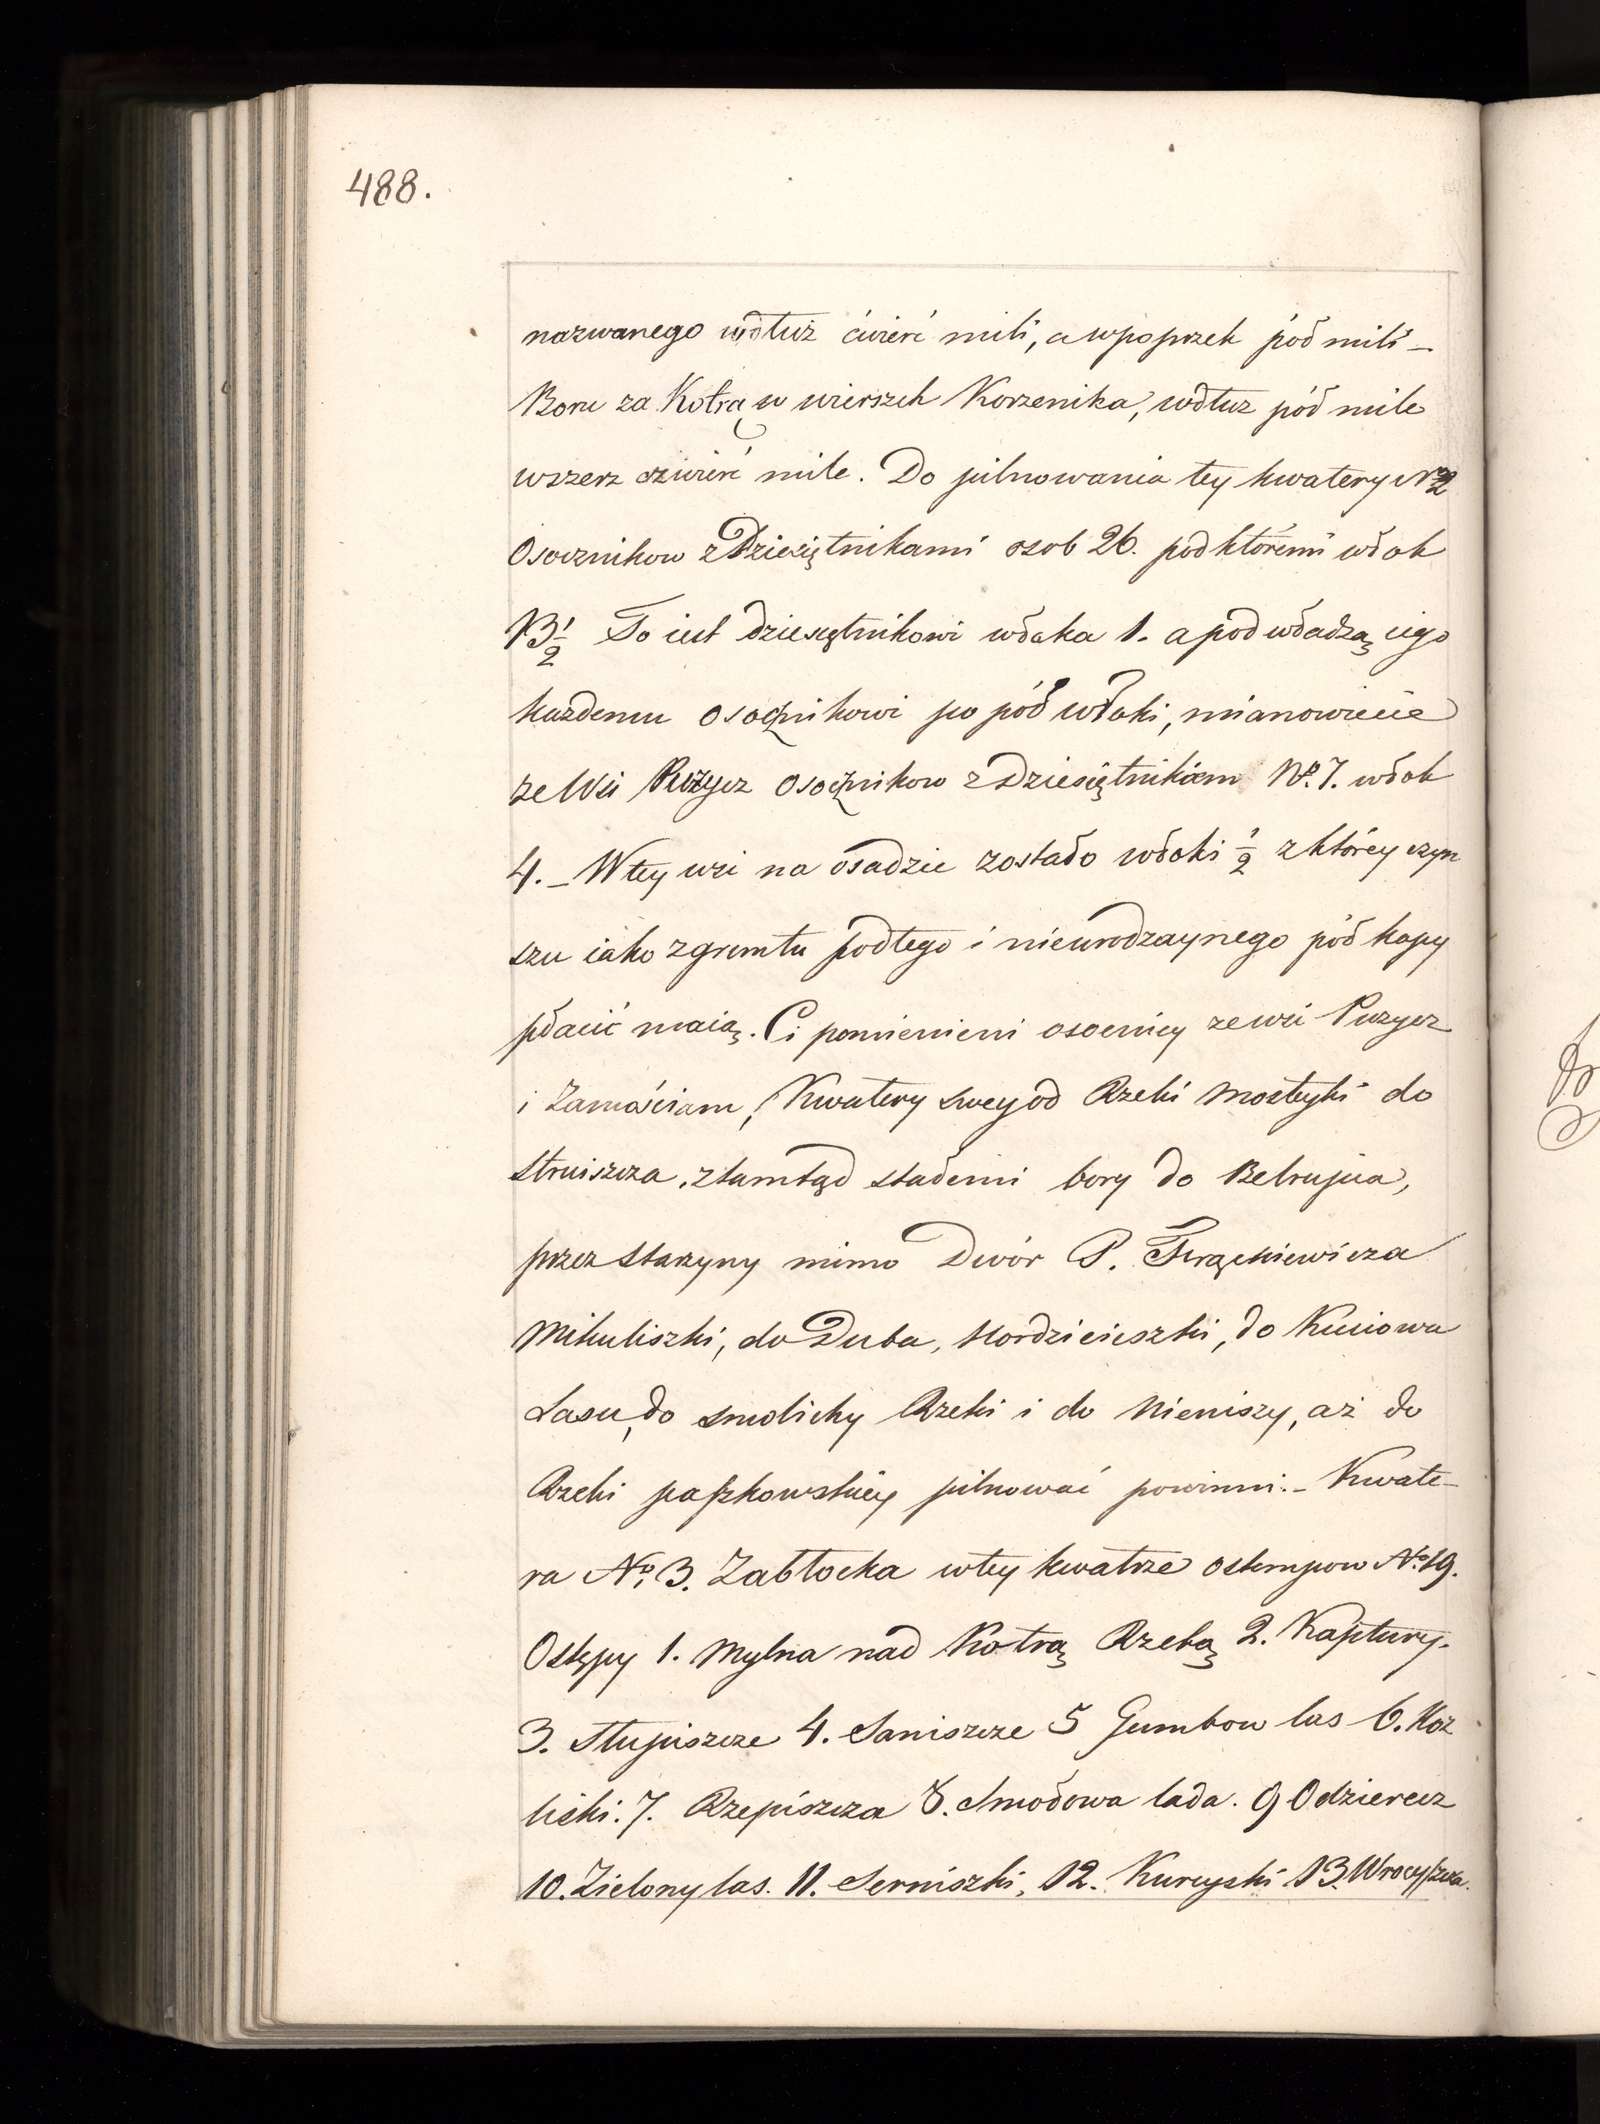 488.
nazwanego wdłuż ćwierć mili, a wpoprzek pół mili –
Boru za Kotrą w wierszch Korzenika, wdłuz pół mile
wszerz czwierć mile. Do pilnowania tey kwatery No 2
Osocznikow z Dziesiętnikami osob 26. pod któremi włok
13 1/2 To iest dziesiętnikowi włoka 1. a pod władzą iego
kazdemu osocznikowi po pół włoki, mianowicie
ze Wsi Puzycz osocznikow z Dziesiętnikiem No. 7. włok
4. – W tey wsi na osadzie zostało włoki 1/2 z którey czyn
szu iako z gruntu podłego i nieurodzaynego pół kopy
płacić maią. Ci pomienieni osocnicy ze wsi Puzycz
i Zamościam, Kwatery swey od Rzeki Mostyki do
Struiszcza, ztamtąd stademi bory do Betrujua,
przez Starzyny mimo Dwór P. Frąckiewicza
Mikuliszki, do Duba, Mordzicieszki, do Kuiowa
Lasu, do smolichy Rzeki i do Nieniszy, aż do
Rzeki paszkowskiey pilnować powinni. – Kwate–
ra No. 3. Zabłocka w tey kwatrze ostempow No. 19.
Ostępy 1. Mylna nad Kotrą Rzeką 2. Kaptury.
3. Stupiszcze 4. Saniszcze 5 Gumbow las 6. Koz
liski. 7. Rzepiszcza 8. Smołowa lada. 9 Odzierecz
10. Zielony las. 11. Serniszki, 12. Kurcyski 13. Wrocyszcza.